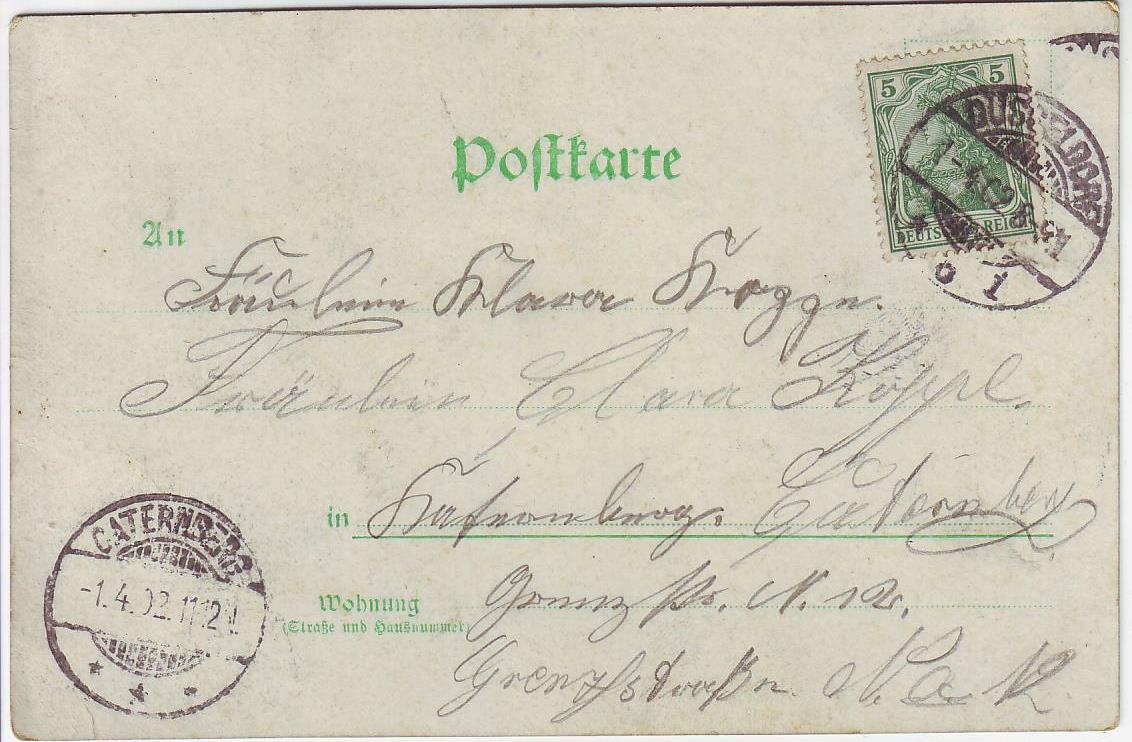 Postkarte
5 5
DEUTSCHES REICH
DUSSELDORF
1
An
Fräulein Klara Koppe.
Fräulein Clara Koppe.
in Katernberg. Caternberg
CATERNBERG
-1.4.02.11-12V.
Wohnung
(Straße und Hausnummer)
Grenzstr. N.
Grenzstraße N.